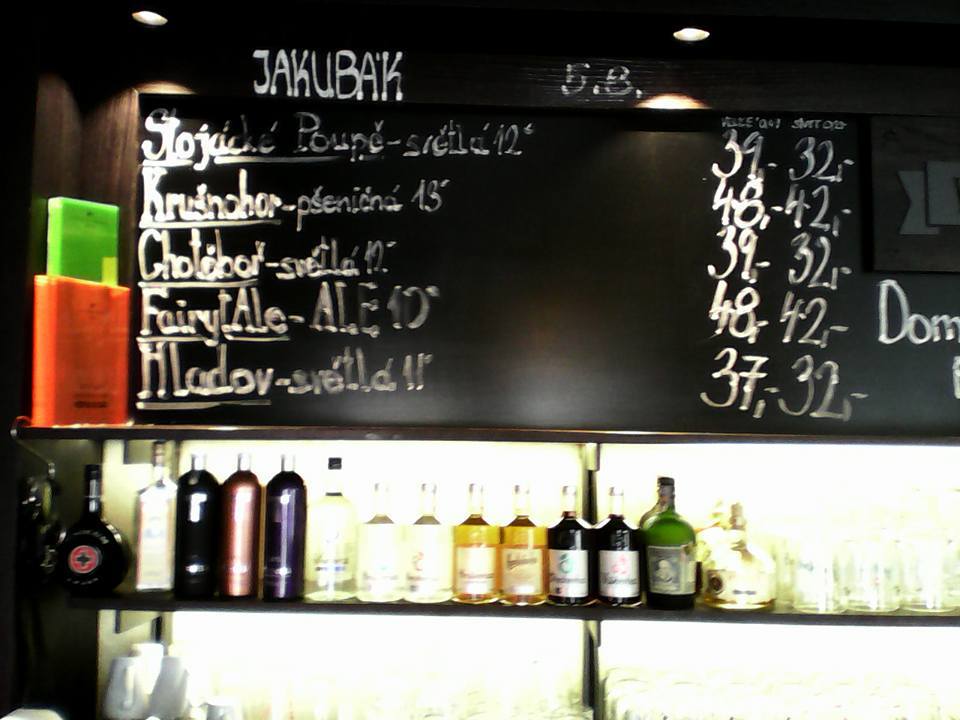 JAKUBÁK 5.8.
Slojácké Poupě - světlá 12° 39,- 32,-
Krušnohor - pšeničná 13° 48,- 42,-
Chotěboř - světlá 12° 39,- 32,-
FairytAle - ALE 10° 48,- 42,-
Hladov - světlá 11° 37,- 32,-
Dom